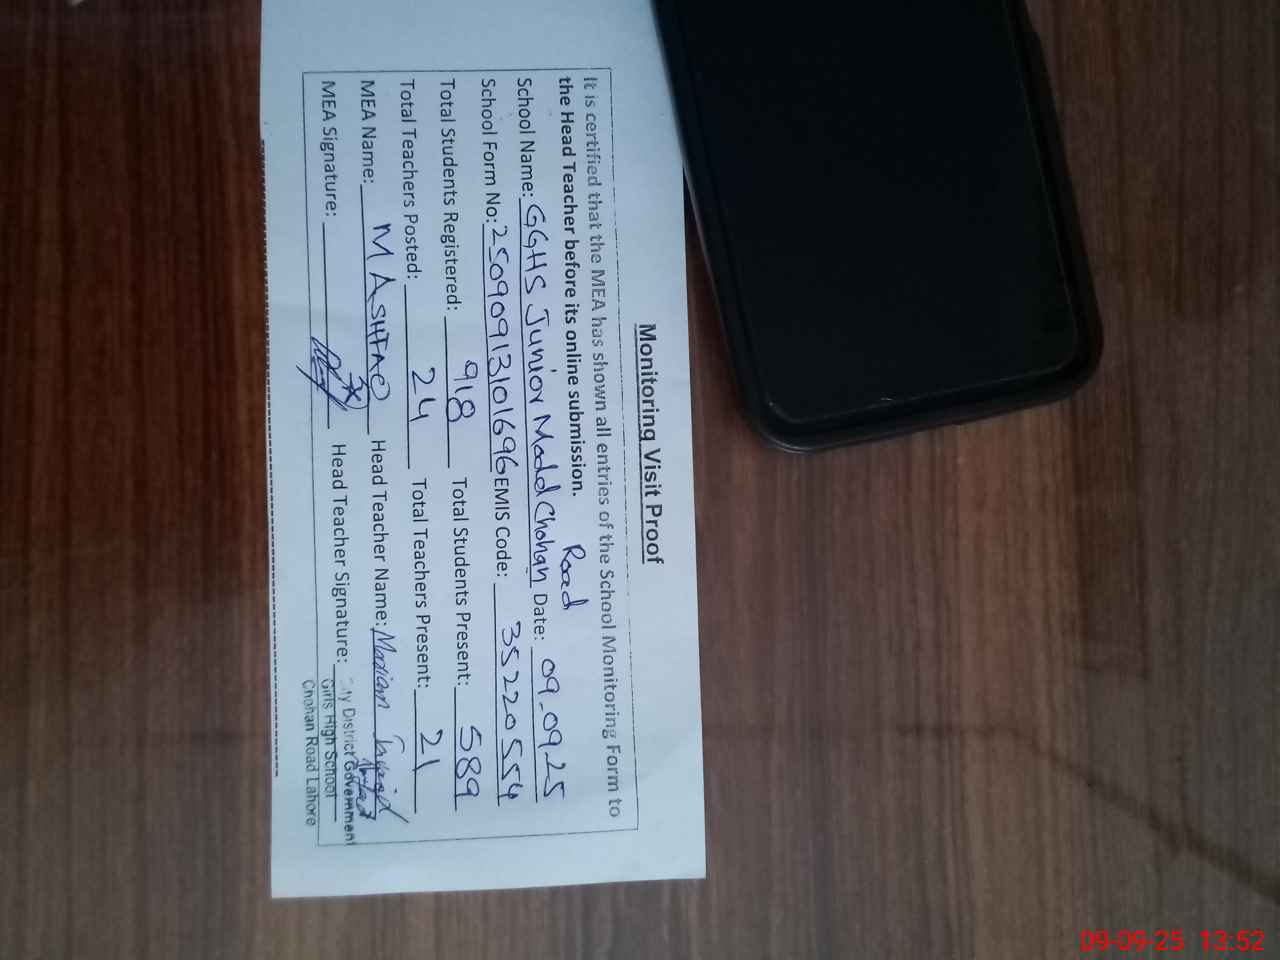 Monitoring Visit Proof
It is certified that the MEA has shown all entries of the School Monitoring Form to
the Head Teacher before its online submission.
Road
School Name: GGHS Junior Model Chohan Date: 09.09.25
School Form No: 25090913101696 EMIS Code: 35220554
Total Students Registered: 918 Total Students Present: 589
Total Teachers Posted: 24 Total Teachers Present: 21
MEA Name: M ASHFAQ Head Teacher Name: Mariam Javaid
MEA Signature: Head Teacher Signature:
District Government
Girls High School
Chohan Road Lahore
09-09-25 13:52